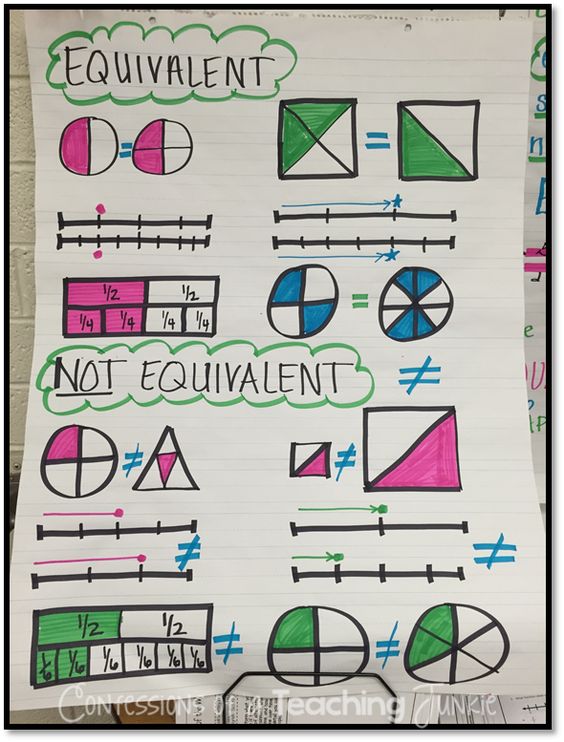 EQUIVALENT
=
=
1/2 1/2
1/4 1/4 1/4 1/4
=
NOT EQUIVALENT ≠
≠
≠
≠
≠
1/2 1/2
1/6 1/6 1/6 1/6 1/6 1/6
≠
≠
Confessions of a Teaching Junkie